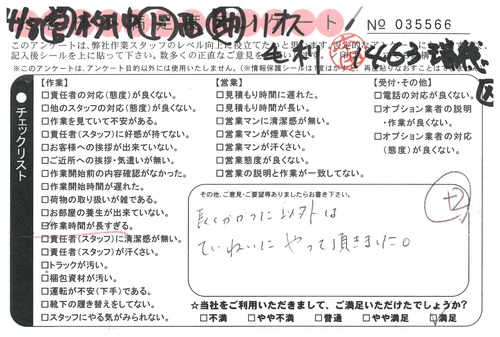 No 035566
このアンケートは、弊社作業スタッフのレベル向上に役立てたいと
記入後シールを上に貼って下さい。数多くの正直なご意見を
チェックリスト
【作業】
□責任者の対応(態度)が良くない。
□他のスタッフの対応(態度)が良くない。
□作業を見ていて不安がある。
□責任者(スタッフ)に好感が持てない。
□お客様への挨拶が出来ていない。
□ご近所への挨拶・気遣いが無い。
□作業開始前の内容確認がなかった。
□作業開始時間が遅れた。
□荷物の取り扱いが雑である。
□お部屋の養生が出来ていない。
□作業時間が長すぎる。
□責任者(スタッフ)に清潔感が無い。
□責任者(スタッフ)が汗くさい。
□トラックが汚い。
□梱包資材が汚い。
□運転が不安(下手)である。
□靴下の履き替えをしてない。
□スタッフにやる気がみられない。
【営業】
□見積もり時間に遅れた。
□見積もり時間が長い。
□営業マンに清潔感が無い。
□営業マンが煙草くさい。
□営業マンが汗くさい。
□営業態度が良くない。
□営業の説明と作業が一致してない。
【受付・その他】
□電話の対応が良くない。
□オプション業者の説明
・作業が良くない。
□オプション業者の対応
(態度)が良くない。
その他、ご意見・ご要望等ありましたらお書き下さい。
長くかかった以外は
ていねいにやって頂きました。
+2
☆当社をご利用いただきまして、ご満足いただけたでしょうか?
□不満 □やや不満 □普通 □やや満足 □満足